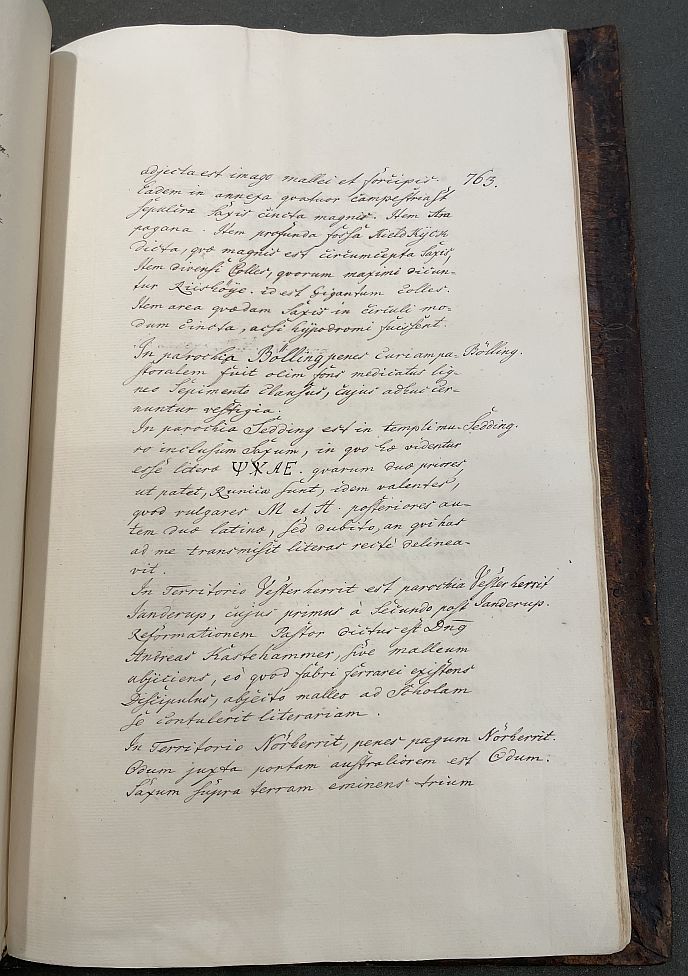 adjecta est imago mallei et forcipis. 763.
Eadem in annexa qvatuor campestria st
sepulcra Saxis cincta magnis. Item Ara
pagana. Item profunda fossa Kield Kijck
dicta, qvæ magnis est circumcepta Saxis,
Item diversi Colles, qvorum maximi dicun-
tur Riishöye. id est Gigantum Colles.
Item area qvædam Saxis in circuli mo-
dum cincta, acsi hÿpodromi fuissent.
In parochia Bölling penes Curiam pa- Bölling.
storalem fuit olim fons medicatus lig-
neo Sepimento Clausus, cujus adhuc cer-
nuntur vestigia.
In parochia Sedding est in templi mu- Sedding.
ro inclusum Saxum, in qvo hæ videntur
esse literæ ᛘᚼ AE. qvarum duæ priores,
ut patet, Runicæ sunt, idem valentes,
qvod vulgares M et H. posteriores au-
tem duæ latinæ, sed dubito, an qvi has
ad me transmisit literas recte delinea-
vit.
In Territorio Vesterherrit est parochia Vesterherrit
Janderup, cujus primus à Secundo post Janderup.
Reformationem Pastor dictus est Dng
Andreas Kastehammer, sive malleum
abjiciens, eò qvod fabri ferrarei existens
Discipulus, abjecto malleo ad Scholam
se contulerit literariam.
In Territorio Nörherrit, penes pagum Nörherrit.
Odum juxta portam australiorem est Odum.
Saxum supra terram eminens trium